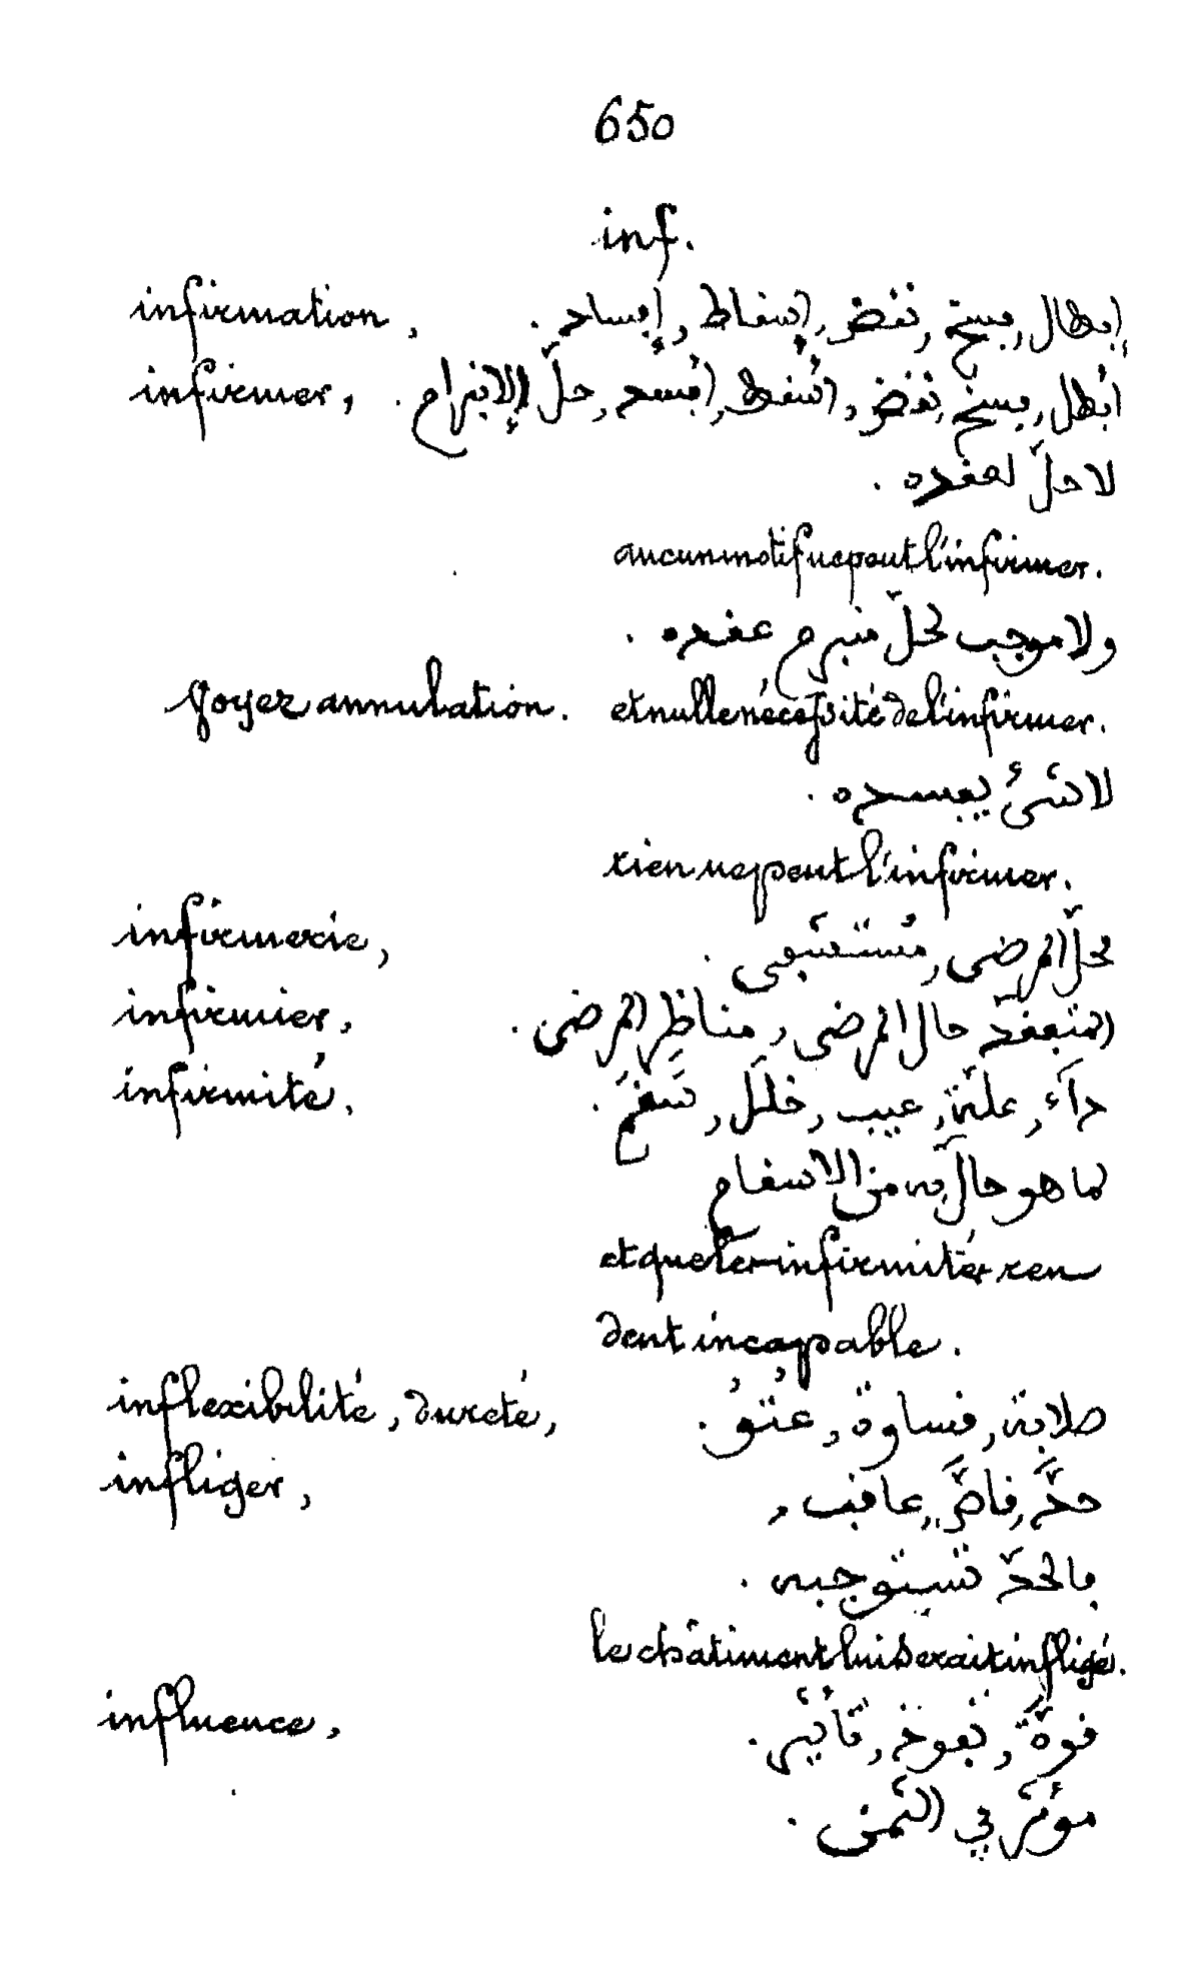 650
inf.
infirmation, إبطال, فسخ, نقض, إسقاط, إفساد.
infirmer, أبطل, فسخ, نقض, أسقط, أفسد, حلّ الإبرام.
لا حلّ لعقده.
aucun motif ne peut l'infirmer.
ولا موجب لحلّ مبرم عقده.
Voyez annulation. et nulle nécessité de l'infirmer.
لا شئ يفسده.
rien ne peut l'infirmer.
infirmerie, محلّ المرضى, مُستشفى.
infirmier, المتفقّد حال المرضى, مناظر المرضى.
infirmité, داء, علّة, عيب, خلل, سقم.
لما هو حال به من الاسقام
et que les infirmités ren
dent incapable.
inflexibilité, dureté, صلابة, قساوة, عُتُوّ.
infliger, حدّ, قاصّ, عاقب,
فالحدّ تستوجبه.
le châtiment lui serait infligé.
influence, قوّة, نفوذ, تأثير.
مؤثّر في الثمن.